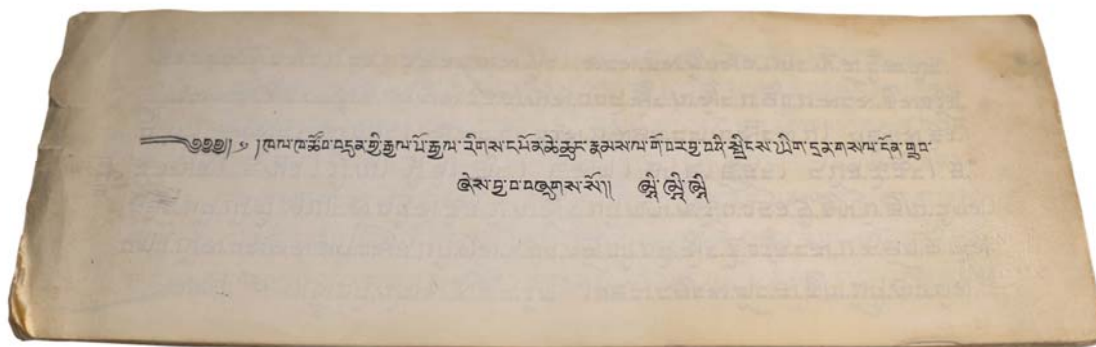 ༄༅༅། ། ཁལ་ཁ་ཚོབ་བདུན་གྱི་རྒྱལ་པོ་རྒྱལ་རིགས་དཔོན་ཆེ་ཆུང་རྣམས་ལ་གོ་བར་བྱ་བའི་སྤྲིངས་ཡིག་དྲན་གསལ་དོན་གྲུབ་
ཞེས་བྱ་བ་བཞུགས་སོ།།